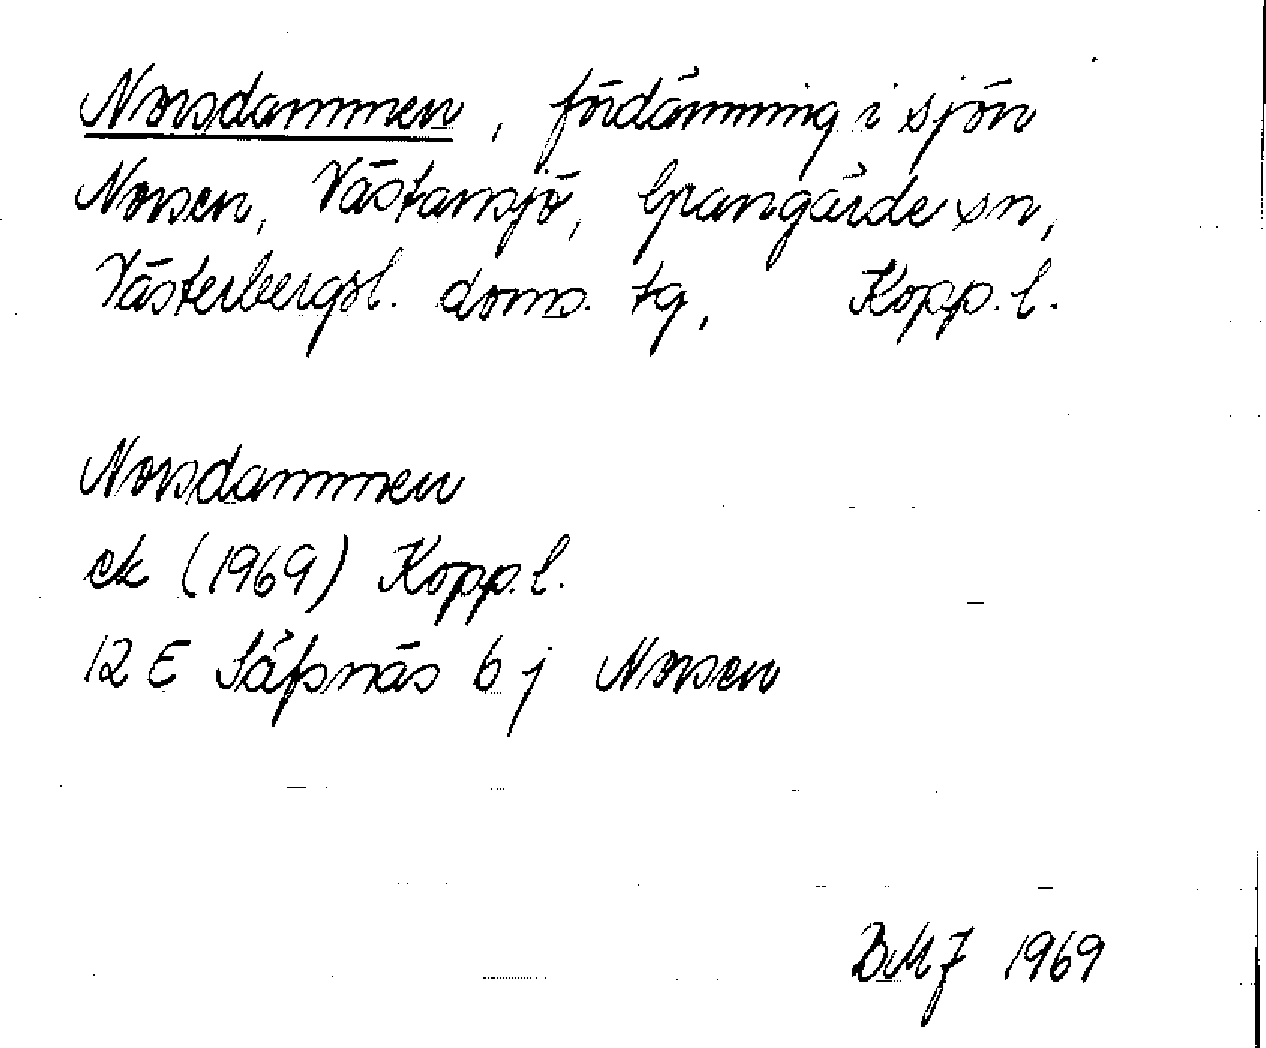 Norsdammen, fördämning i sjön
Norsen, Västansjö, Grangärde sn,
Västerbergsl. doms. tg, Kopp. l.
Norsdammen
ek (1969) Kopp. l.
12 E Säfsnäs 6 j Norsen
BMJ 1969